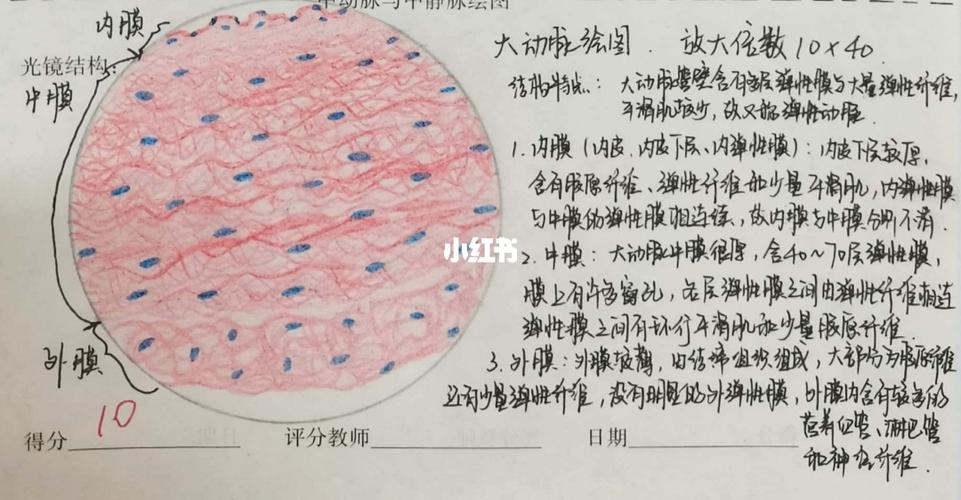 中动脉与中静脉绘图
内膜
光镜结构:
中膜
外膜
大动脉绘图. 放大倍数10×40
结构特点: 大动脉管壁含有多层弹性膜与大量弹性纤维,
平滑肌较少, 故又称弹性动脉.
1. 内膜(内皮、内皮下层、内弹性膜): 内皮下层较厚,
含有胶原纤维、弹性纤维和少量平滑肌, 内弹性膜
与中膜的弹性膜相连续, 故内膜与中膜分界不清.
小红书
2. 中膜: 大动脉中膜很厚, 含40~70层弹性膜,
膜上有许多窗孔, 各层弹性膜之间由弹性纤维相连
弹性膜之间有环行平滑肌和少量胶原纤维.
3. 外膜: 外膜较薄, 由结缔组织组成, 大部分为胶原纤维
还有少量弹性纤维, 没有明显的外弹性膜, 外膜内含有较多的
营养血管、淋巴管
和神经纤维.
得分 10 评分教师 日期